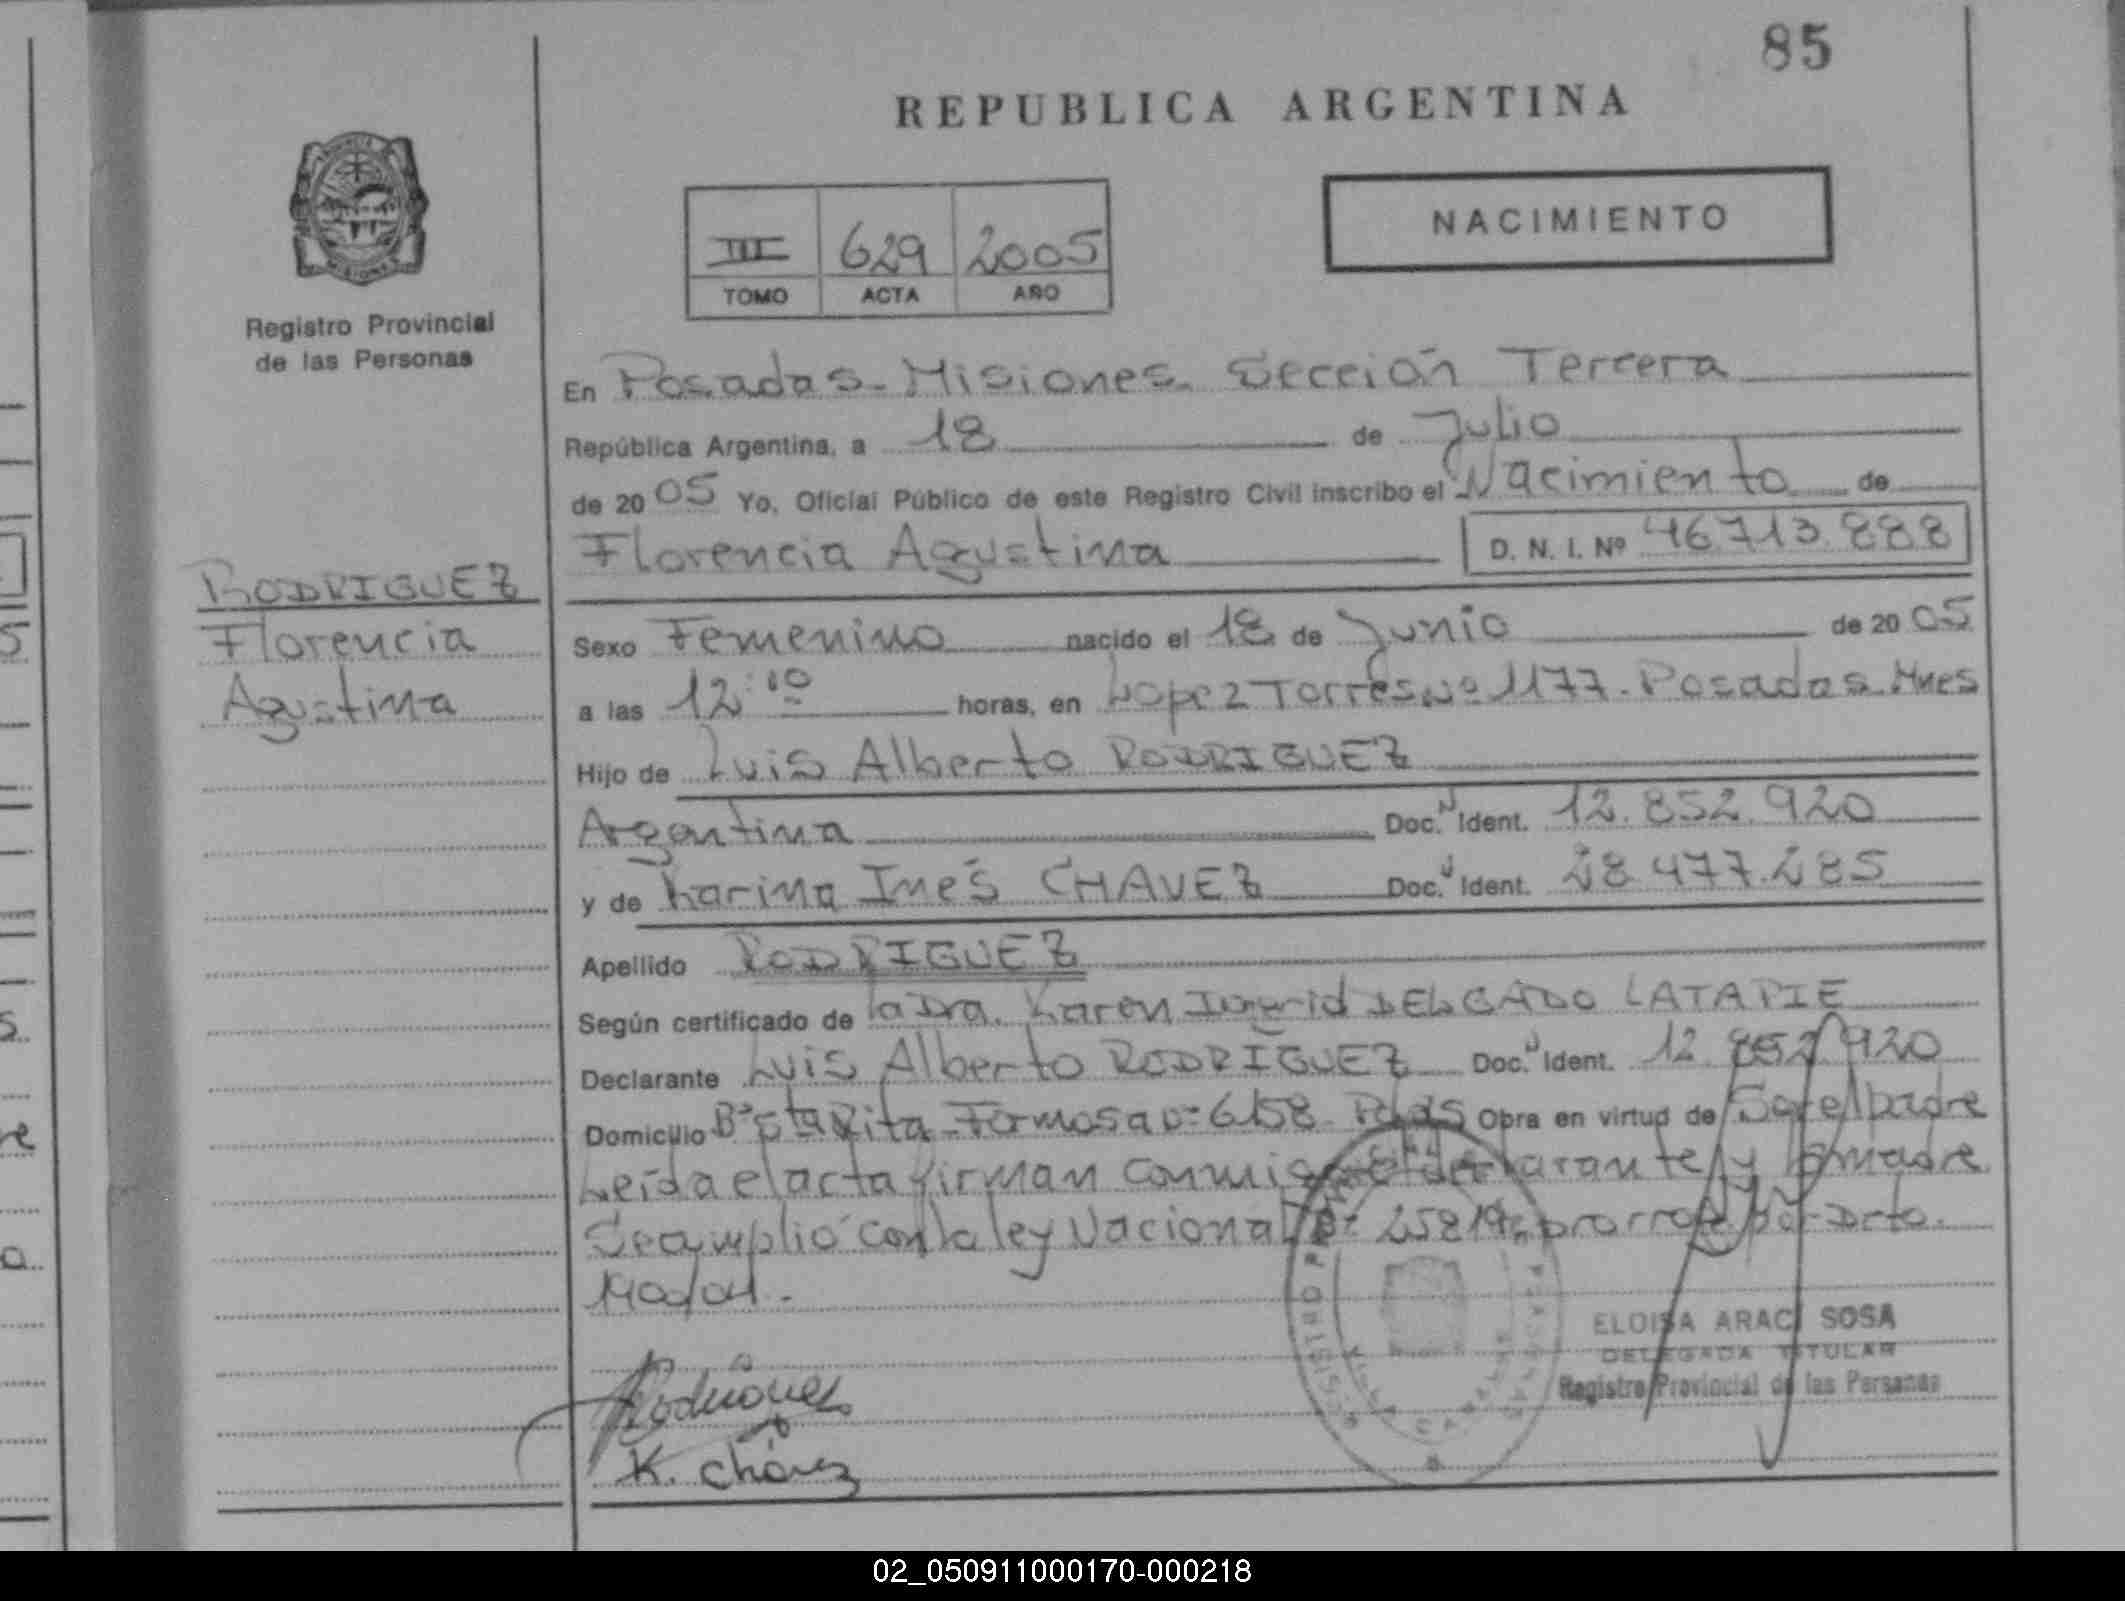 85
REPUBLICA ARGENTINA
III 629 2005
TOMO ACTA AÑO
NACIMIENTO
Registro Provincial
de las Personas
En Posadas - Misiones. Sección Tercera
República Argentina, a 18 de Julio
de 2005 Yo, Oficial Público de este Registro Civil inscribo el Nacimiento de
Florencia Agustina D. N. I. Nº 46.713.888
RODRIGUEZ
Florencia
Agustina
Sexo Femenino nacido el 18 de Junio de 2005
a las 12:10 horas, en Lopez Torres Nº 1177. Posadas Mnes
Hijo de Luis Alberto RODRIGUEZ
Argentina Doc. N Ident. 12.852.920
y de Karina Inés CHAVEZ Doc. N Ident. 28.477.285
Apellido RODRIGUEZ
Según certificado de la Dra. Karen Ingrid DELGADO LATAPIE
Declarante Luis Alberto RODRIGUEZ Doc. N Ident. 12.852.920
Domicilio Bº Sta Rita Formosa Nº 6158 Pdas Obra en virtud de Ser el padre
Leída el acta firman conmigo el declarante y la madre
Se cumplió con la ley Nacional Nº 25819, prorrog. por Dcto.
190/04.-
ELOISA ARACI SOSA
DELEGADA TITULAR
Registro Provincial de las Personas
Rodriguez
K. Chávez
02_050911000170-000218